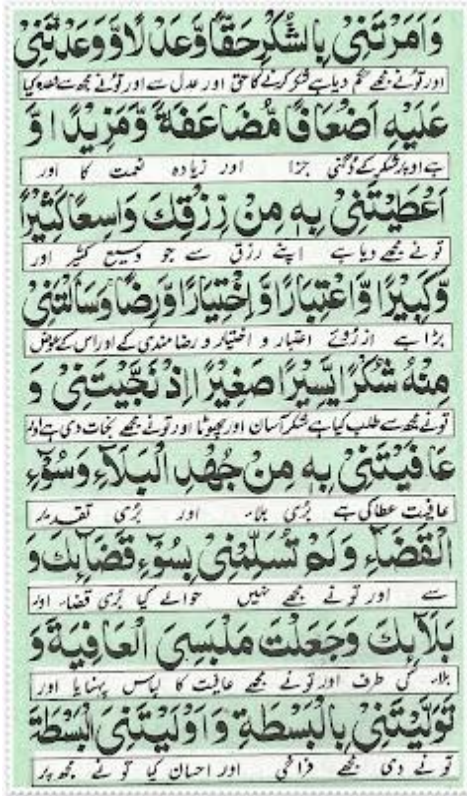 وَاَمَرْتَنِیْ بِالشُّكْرِ حَقًّا وَّعَدْلًا وَّ وَعَدْتَّنِیْ
اور تونے مجھے حکم دیا ہے شکر کرنے کا حق اور عدل سے اور تونے مجھ سے وعدہ کیا
عَلَیْهِ اَضْعَافًا مُّضَاعَفَةً وَّمَزِیْدًا وَّ
ہے اوپر شکر کے دُگنی جزا اور زیادہ نعمت کا اور
اَعْطَیْتَنِیْ بِهٖ مِنْ رِّزْقِكَ وَاسِعًا كَثِیْرًا
تونے مجھے دیا ہے اپنے رزق سے جو وسیع کثیر اور
وَّكَبِیْرًا وَّاعْتِبَارًا وَّ اِخْتِیَارًا وَّرِضًا وَسَاَلْتَنِیْ
بڑا ہے از روئے اعتبار و اختیار و رضامندی کے اور اس کے عوض
مِنْهُ شُكْرًا یَّسِیْرًا صَغِیْرًا اِذْ نَجَّیْتَنِیْ وَ
تونے مجھ سے طلب کیا ہے شکر آسان اور چھوٹا اور تونے مجھے نجات دی ہے اور
عَافَیْتَنِیْ بِهٖ مِنْ جُهْدِ الْبَلَآءِ وَسُوْٓءِ
عافیت عطا کی ہے بُری بلاء اور بُری تقدیر
الْقَضَآءِ وَلَمْ تُسَلِّمْنِیْ بِسُوْٓءِ قَضَآىِٕكَ وَ
سے اور تو نے مجھے نہیں حوالے کیا بُری قضاء اور
بَلَآىِٕكَ وَجَعَلْتَ مَلْبَسِیَ الْعَافِیَةَ وَ
بلاء کی طرف اور تونے مجھے عافیت کا لباس پہنایا اور
تَوَلَّیْتَنِیْ بِالْبَسْطَةِ وَاَوْلَیْتَنِیَ الْبَسْطَةَ
تونے دی مجھے فراخی اور احسان کیا تونے مجھ پر